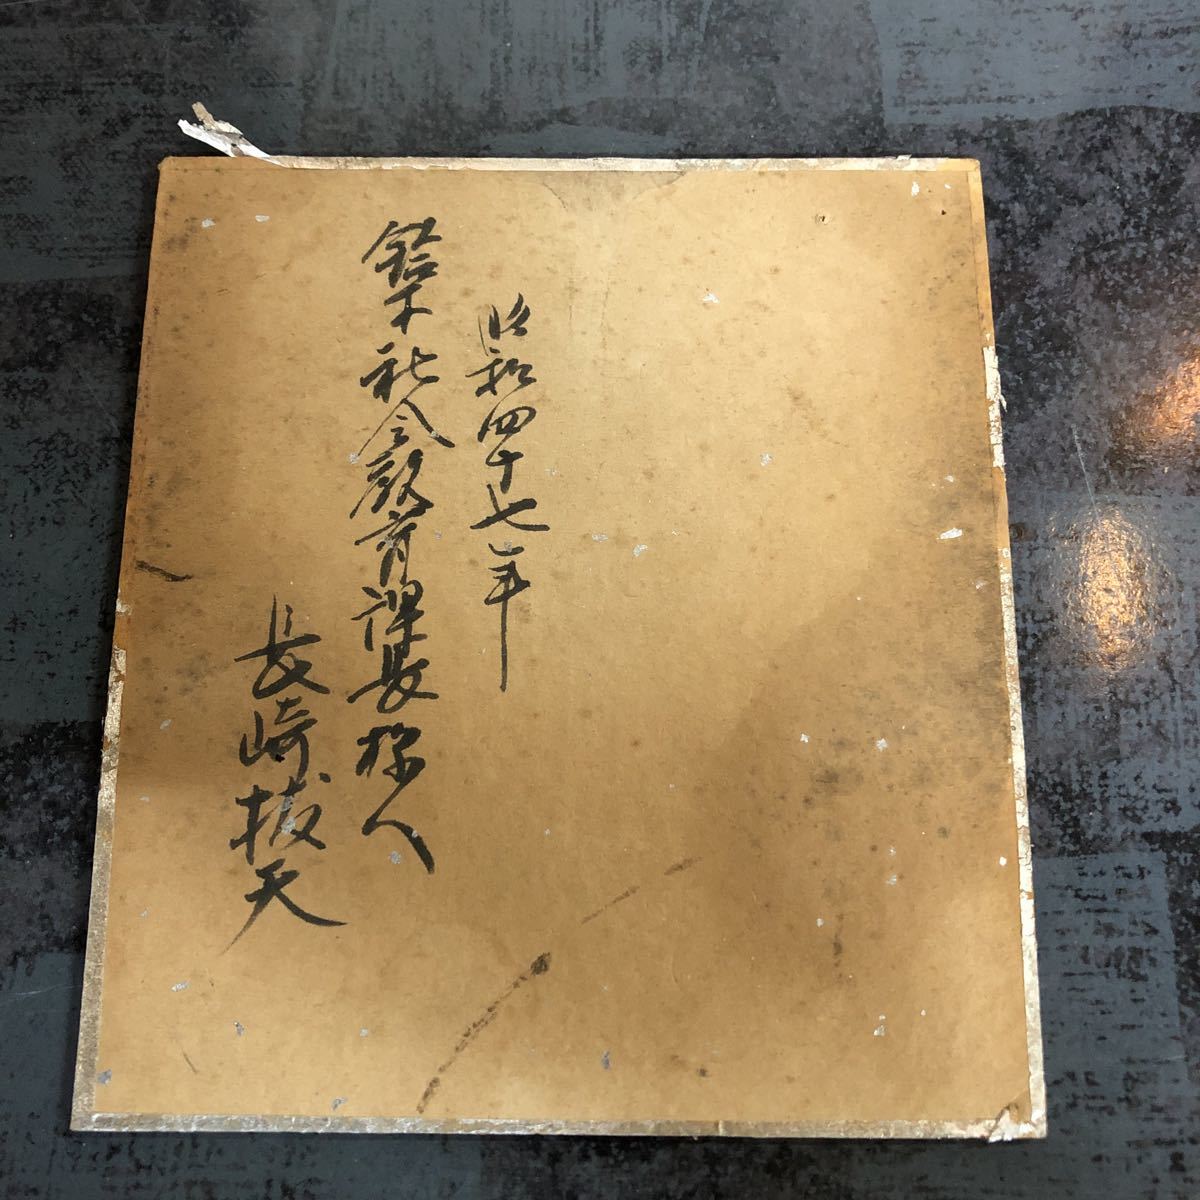 昭和四十七年
鈴木社会教育課長様へ
長崎抜天